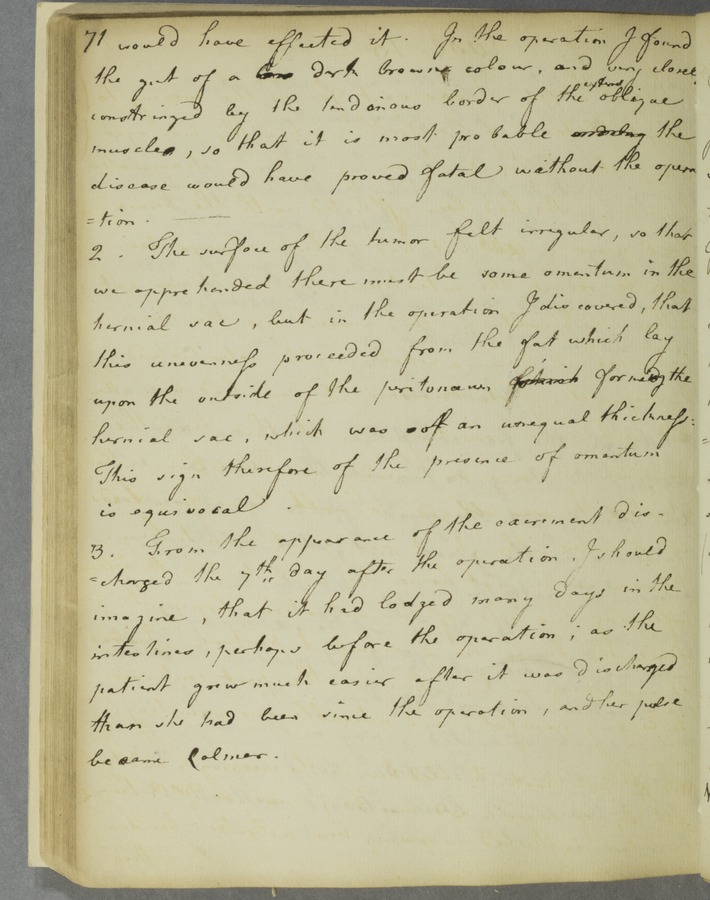 71 would have effected it. In the operation I found
the gut of a dark brown colour, and very closel
constringed by the tendonous border of the extern oblique
muscle, so that it is most probable the
disease would have proved fatal without the opera
=tion.
2. The surface of the tumor felt irregular, so that
we apprehended there must be some omentum in the
hernial sac, but in the operation I discovered, that
this unevenness proceeded from the fat which lay
upon the outside of the peritonæum formed the
hernial sac, which was of an unequal thickness:
This sign therefore of the presence of omentum
is equivocal.
3. From the appearance of the excrement dis-
=charged the 7th day after the operation, I should
imagine, that it had lodged many days in the
intestines, perhaps before the operation; as the
patient grew much easier after it was discharged
than she had been since the operation, and her pulse
became calmer.